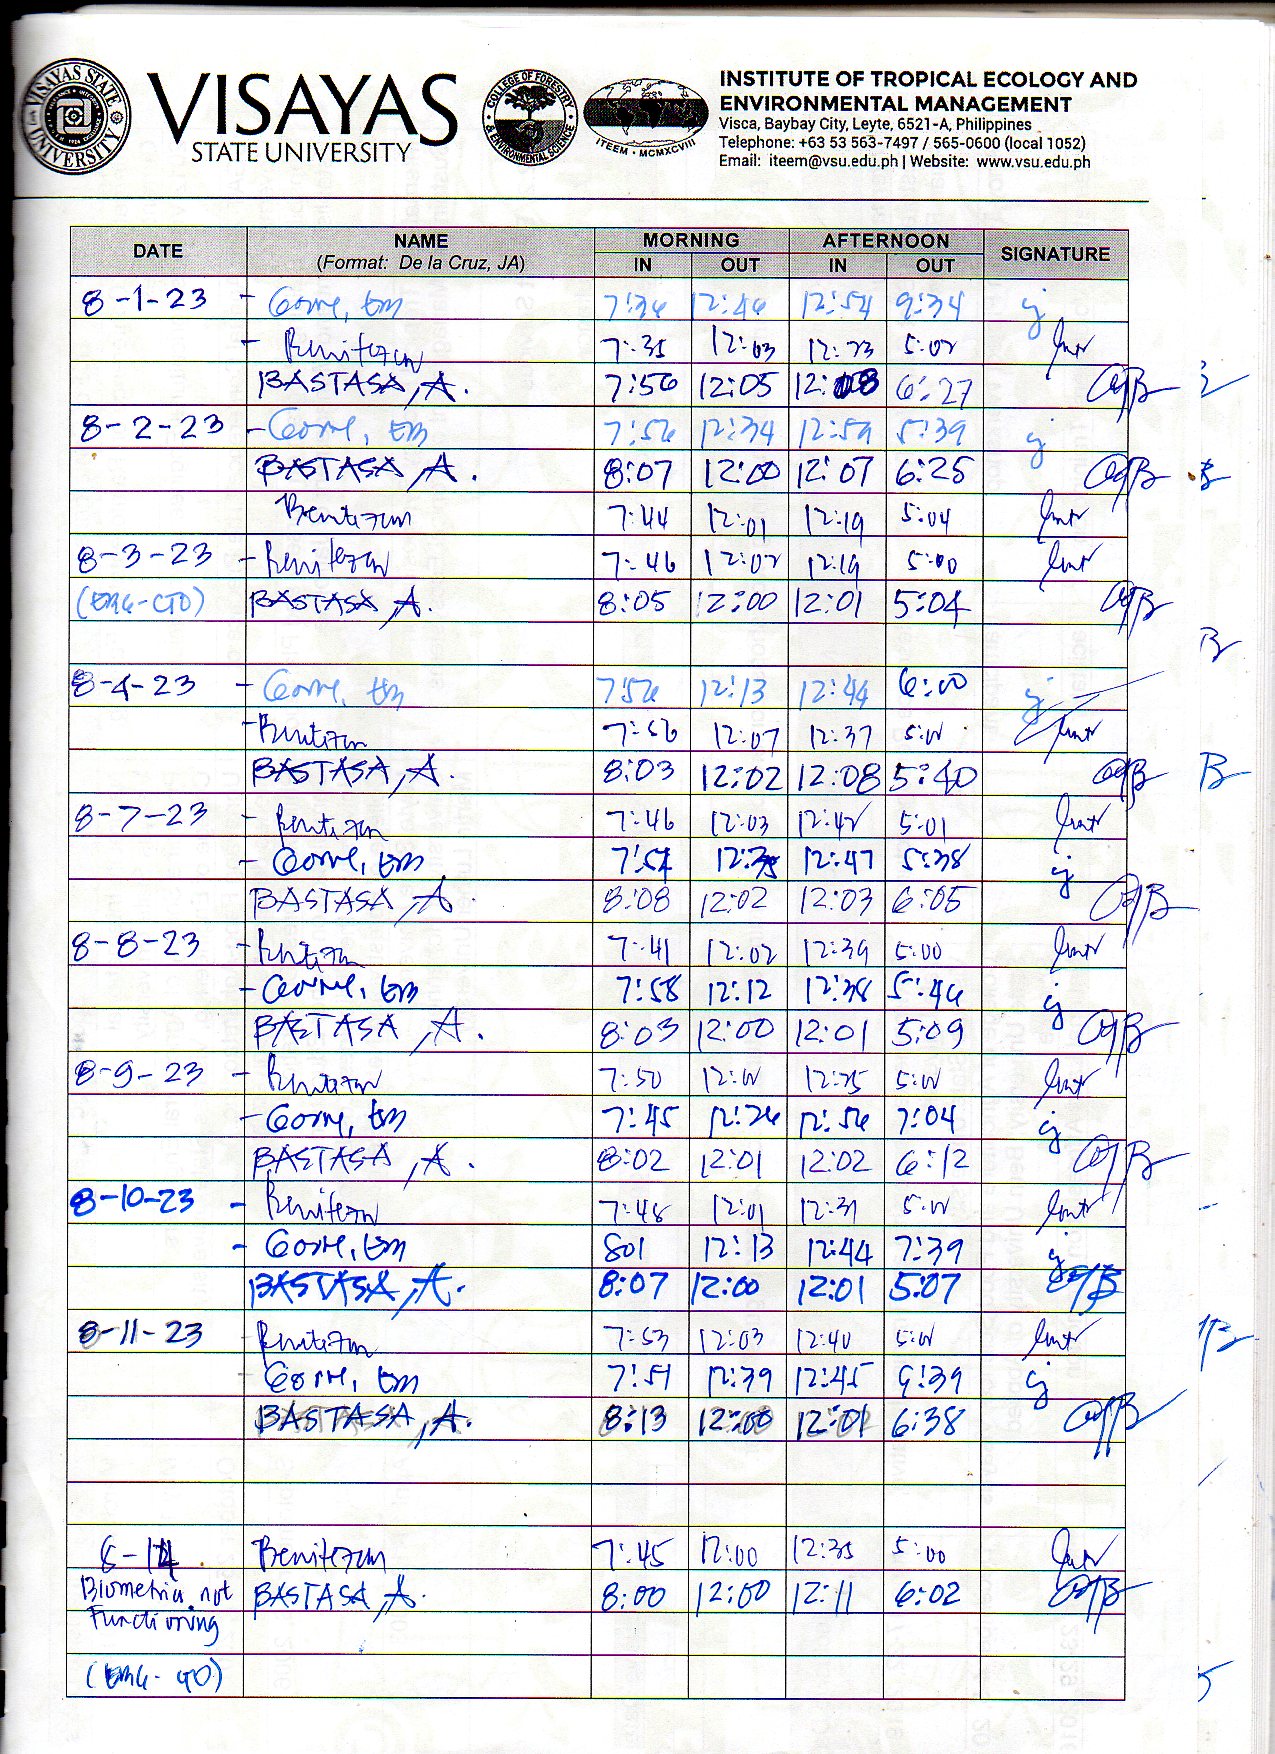 VISAYAS
STATE UNIVERSITY
VISAYAS STATE UNIVERSITY
COLLEGE OF FORESTRY & ENVIRONMENTAL SCIENCE
ITEEM • MCMXCVIII
INSTITUTE OF TROPICAL ECOLOGY AND
ENVIRONMENTAL MANAGEMENT
Visca, Baybay City, Leyte, 6521-A, Philippines
Telephone: +63 53 563-7497 / 565-0600 (local 1052)
Email: iteem@vsu.edu.ph | Website: www.vsu.edu.ph
DATE NAME MORNING AFTERNOON SIGNATURE
(Format: De la Cruz, JA) IN OUT IN OUT
8-1-23 - Gorre, EM 7:36 12:46 12:54 9:34
- 7:35 12:03 12:23 5:02
BASTASA, A. 7:56 12:05 12:08 6:27
8-2-23 - Gorre, EM 7:56 12:34 12:59 5:39
BASTASA, A. 8:07 12:00 12:07 6:25
7:44 12:01 12:19 5:04
8-3-23 - 7:46 12:02 12:19 5:00
(EMG-CTO) BASTASA, A. 8:05 12:00 12:01 5:04
8-4-23 - Gorre, EM 7:56 12:13 12:44 6:00
- 7:56 12:07 12:37
BASTASA, A. 8:03 12:02 12:08 5:40
8-7-23 - 7:46 12:03 12:42 5:01
- Gorre, EM 12:47 5:38
BASTASA, A. 8:08 12:02 12:03 6:05
8-8-23 - 7:41 12:02 12:39 5:00
- Gorre, EM 7:58 12:12 12:38 5:46
BASTASA, A. 8:03 12:00 12:01 5:09
8-9-23 - 7:50 12:25
- Gorre, EM 7:45 12:26 12:56 7:04
BASTASA, A. 8:02 12:01 12:02 6:12
8-10-23 - 7:48 12:01 12:31
- Gorre, EM 801 12:13 12:44 7:39
BASTASA, A. 8:07 12:00 12:01 5:07
8-11-23 - 7:53 12:03 12:40
- Gorre, EM 7:51 12:39 12:45 9:39
BASTASA, A. 8:13 12:00 12:01 6:38
8-14 7:45 12:00 12:35 5:00
Biometric not BASTASA, A. 8:00 12:00 12:11 6:02
Functioning
(EMG-CTO)